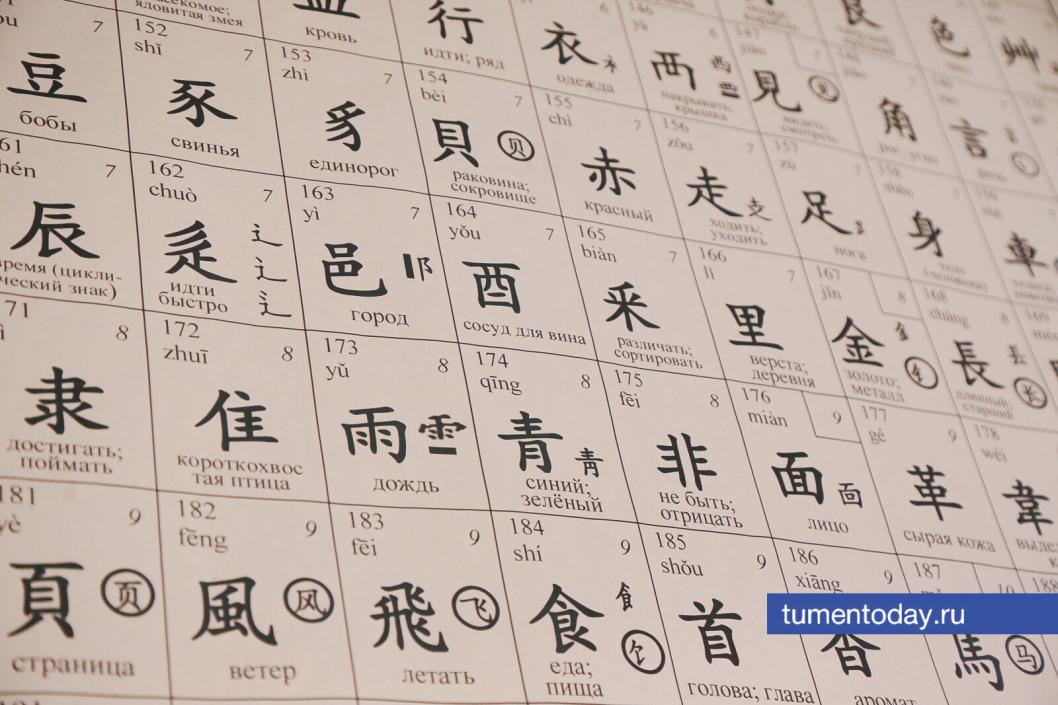 ядовитая змея
кровь
行
идти; ряд
衣
одежда
146
西
накрывать;
крышка
147
見
角
色
艸
言
7
豆
бобы
152
shǐ
7
豕
свинья
153
zhì
7
豸
единорог
154
bèi
7
貝 贝
раковина;
сокровище
155
chì
7
赤
красный
156
zǒu
7
走
ходить;
уходить
157
zú
7
足
нога
158
shēn
身
車
7
辰
время (цикли-
ческий знак)
162
chuò
7
辵
идти
быстро
163
yì
7
邑 阝
город
164
yǒu
7
酉
сосуд для вина
165
biàn
7
釆
различать;
сортировать
166
lǐ
7
里
верста;
деревня
167
jīn
8
金 钅
золото;
металл
168
cháng
8
長 长
длинный;
старший
169
71
8
隶
достигать;
поймать
172
zhuī
8
隹
короткохвос
тая птица
173
yǔ
8
雨
дождь
174
qīng
8
青
синий;
зелёный
175
fēi
8
非
не быть;
отрицать
176
miàn
9
面
лицо
177
gé
9
革
сырая кожа
178
wéi
韋
181
yè
9
頁 页
страница
182
fēng
9
風 风
ветер
183
fēi
9
飛 飞
летать
184
shí
9
食 饣
еда;
пища
185
shǒu
9
首
голова; глава
186
xiāng
9
香
аромат
187
10
馬 马
188
tumentoday.ru